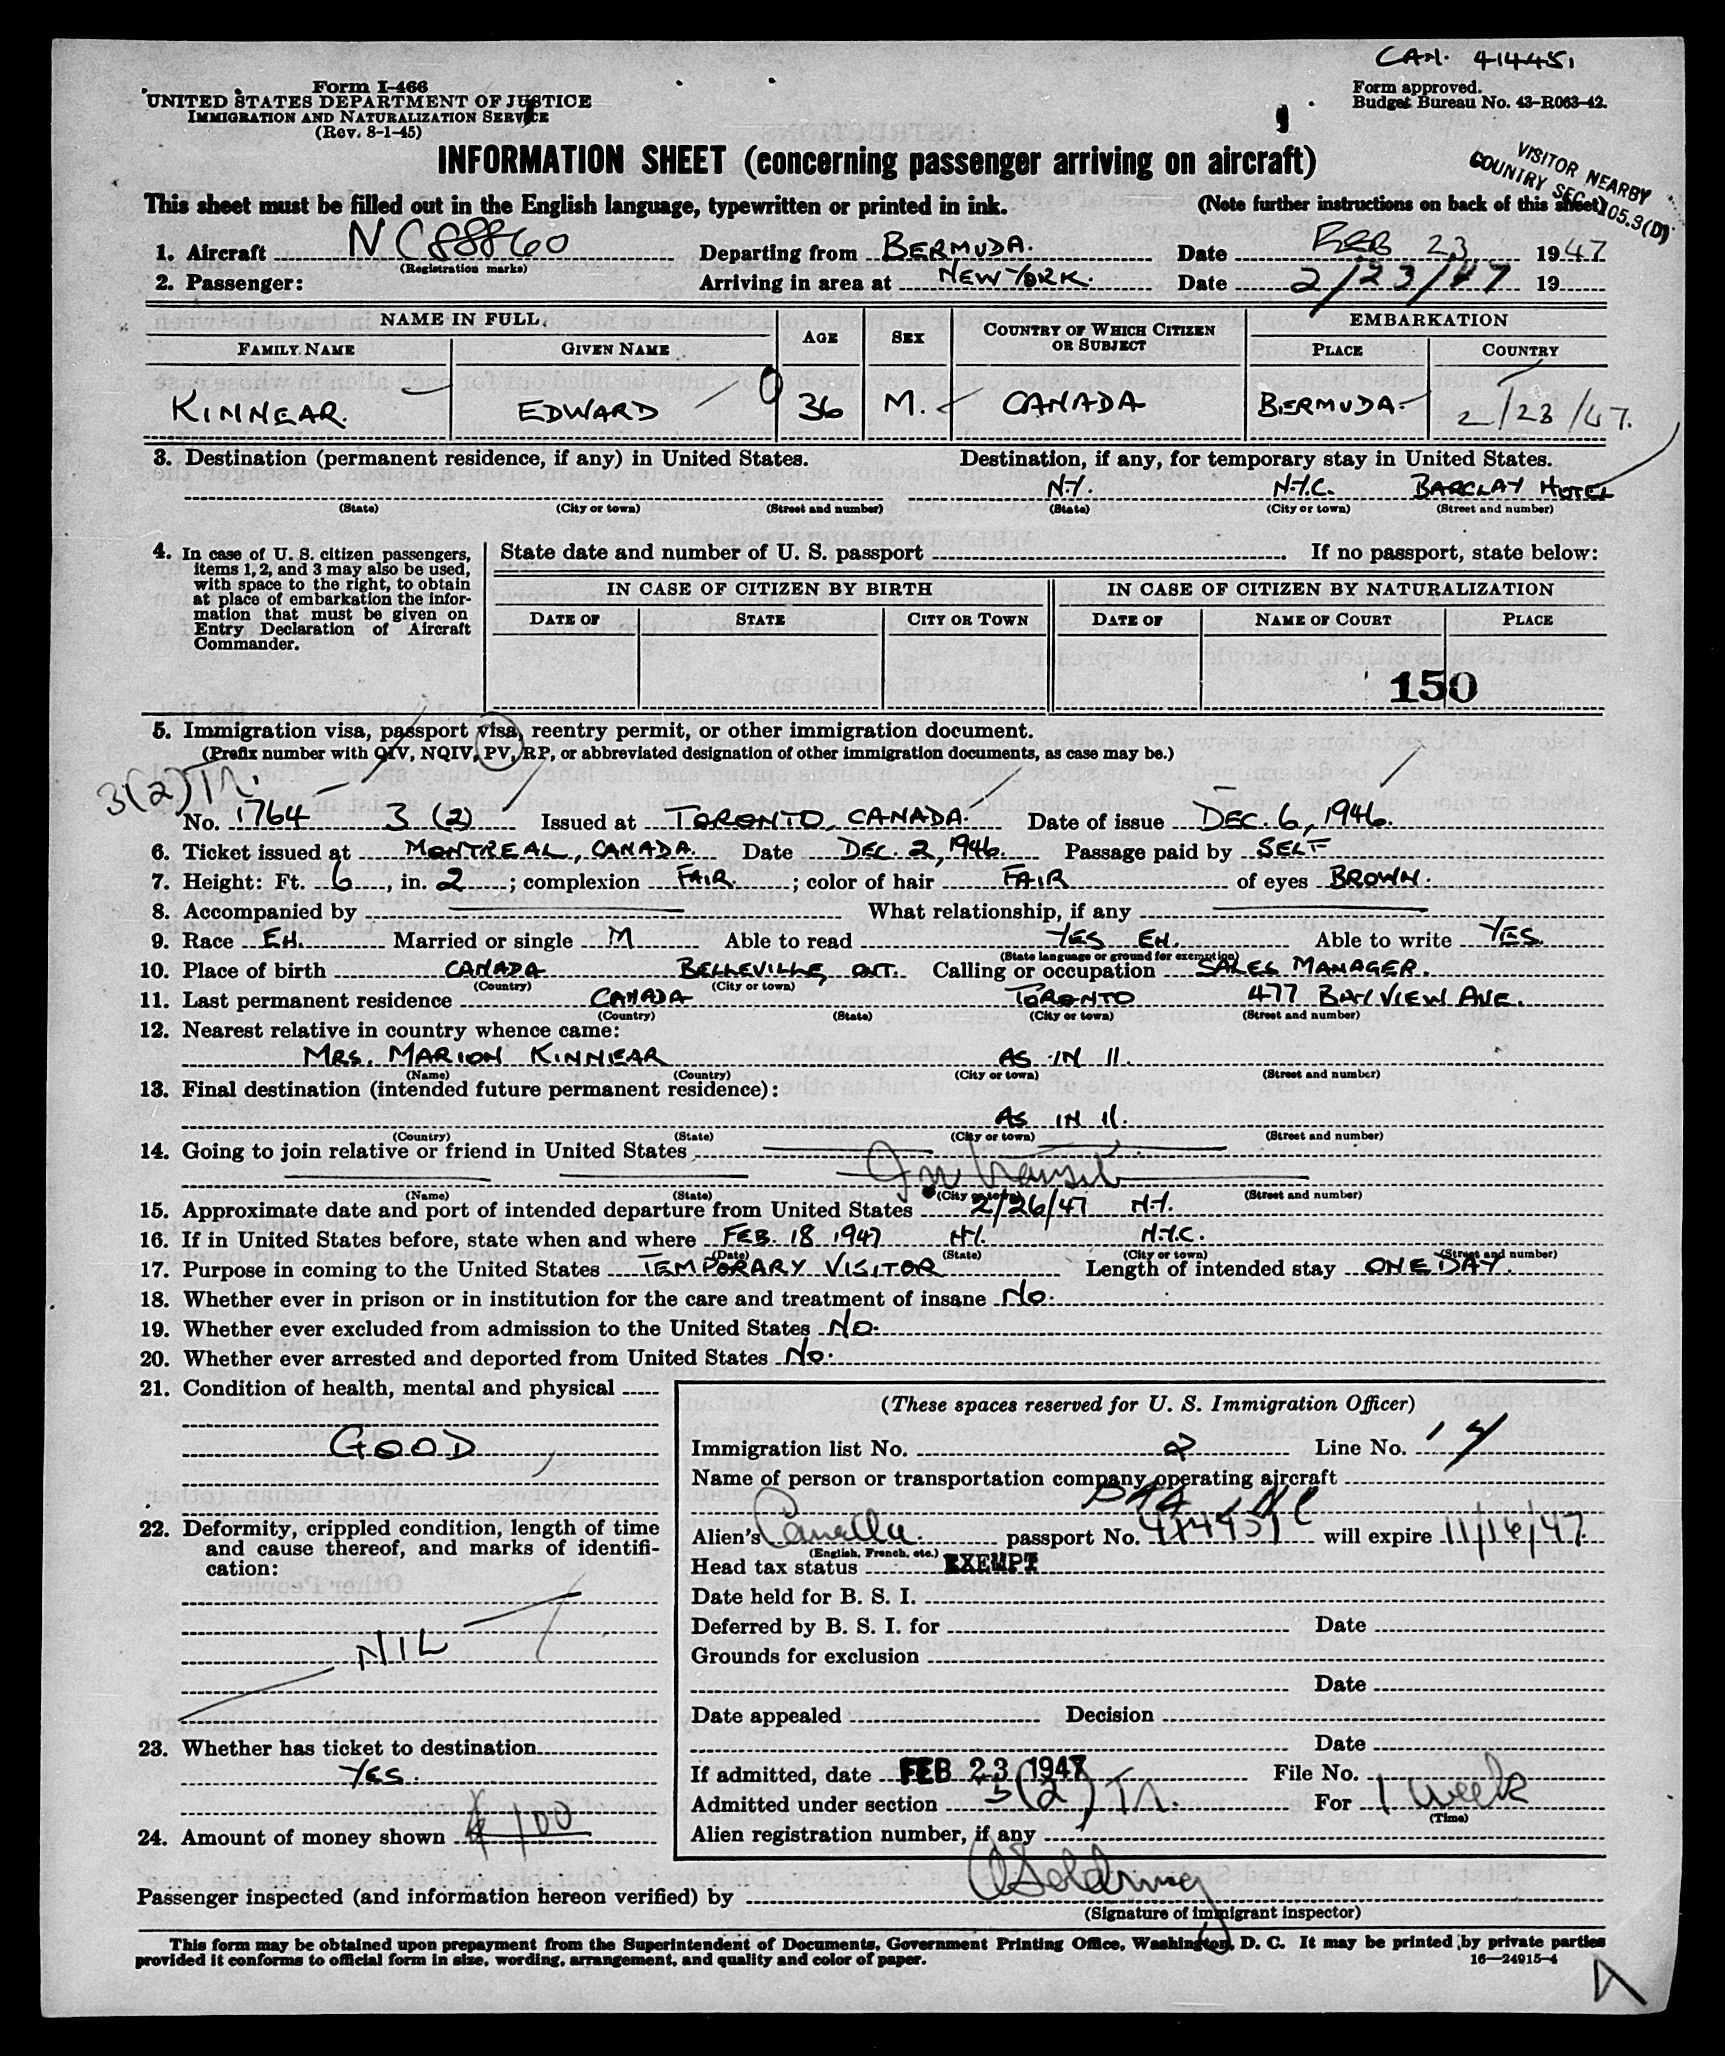 CAN. 414451
Form I-466
UNITED STATES DEPARTMENT OF JUSTICE
IMMIGRATION AND NATURALIZATION SERVICE
(Rev. 8-1-45)
Form approved.
Budget Bureau No. 43-R063-42.
INFORMATION SHEET (concerning passenger arriving on aircraft)
VISITOR NEARBY
COUNTRY SEC. 105.3(D)
This sheet must be filled out in the English language, typewritten or printed in ink. (Note further instructions on back of this sheet)
1. Aircraft NC88860 Departing from BERMUDA. Date FEB 23 1947
(Registration marks)
2. Passenger: Arriving in area at NEW YORK. Date 2/23/47 19
NAME IN FULL. AGE SEX COUNTRY OF WHICH CITIZEN OR SUBJECT EMBARKATION
FAMILY NAME GIVEN NAME PLACE COUNTRY
KINNEAR. EDWARD 36 M. CANADA BERMUDA 2/23/47.
3. Destination (permanent residence, if any) in United States. Destination, if any, for temporary stay in United States.
N.Y. N.Y.C. BARCLAY HOTEL
(State) (City or town) (Street and number) (State) (City or town) (Street and number)
4. In case of U. S. citizen passengers, items 1, 2, and 3 may also be used, with space to the right, to obtain at place of embarkation the information that must be given on Entry Declaration of Aircraft Commander.
State date and number of U. S. passport If no passport, state below:
IN CASE OF CITIZEN BY BIRTH IN CASE OF CITIZEN BY NATURALIZATION
DATE OF STATE CITY OR TOWN DATE OF NAME OF COURT PLACE
150
5. Immigration visa, passport visa, reentry permit, or other immigration document.
(Prefix number with QIV, NQIV, PV, RP, or abbreviated designation of other immigration documents, as case may be.)
3(2)Tr.
No. 1764 3 (2) Issued at TORONTO, CANADA. Date of issue DEC. 6, 1946.
6. Ticket issued at MONTREAL, CANADA. Date DEC. 2, 1946. Passage paid by SELF
7. Height: Ft. 6, in. 2; complexion FAIR.; color of hair FAIR of eyes BROWN.
8. Accompanied by What relationship, if any
9. Race EH. Married or single M Able to read YES EH. Able to write YES.
(State language or ground for exemption)
10. Place of birth CANADA BELLEVILLE, ONT. Calling or occupation SALES MANAGER.
(Country) (City or town)
11. Last permanent residence CANADA TORONTO 477 BAYVIEW AVE.
(Country) (State) (City or town) (Street and number)
12. Nearest relative in country whence came:
MRS. MARION KINNEAR AS IN 11.
(Name) (Country) (City or town) (Street and number)
13. Final destination (intended future permanent residence):
AS IN 11.
(Country) (State) (City or town) (Street and number)
14. Going to join relative or friend in United States
In transit
(Name) (State) (City or town) (Street and number)
15. Approximate date and port of intended departure from United States 2/26/47 N.Y.
16. If in United States before, state when and where FEB. 18 1947 N.Y. N.Y.C.
(Date) (State) (City or town) (Street and number)
17. Purpose in coming to the United States TEMPORARY VISITOR Length of intended stay ONE DAY.
18. Whether ever in prison or in institution for the care and treatment of insane No.
19. Whether ever excluded from admission to the United States No.
20. Whether ever arrested and deported from United States No.
21. Condition of health, mental and physical
GOOD
22. Deformity, crippled condition, length of time and cause thereof, and marks of identification:
NIL
23. Whether has ticket to destination
YES.
24. Amount of money shown $100
(These spaces reserved for U. S. Immigration Officer)
Immigration list No. 2 Line No. 14
Name of person or transportation company operating aircraft
Alien's Canada. passport No. 414451 will expire 11/16/47.
(English, French, etc.)
Head tax status EXEMPT
Date held for B. S. I.
Deferred by B. S. I. for Date
Grounds for exclusion
Date
Date appealed Decision
Date
If admitted, date FEB 23 1947 File No.
Admitted under section 3(2) Tr. For 1 week
(Time)
Alien registration number, if any
Passenger inspected (and information hereon verified) by
(Signature of immigrant inspector)
This form may be obtained upon prepayment from the Superintendent of Documents, Government Printing Office, Washington, D. C. It may be printed by private parties
provided it conforms to official form in size, wording, arrangement, and quality and color of paper. 16—24915-4